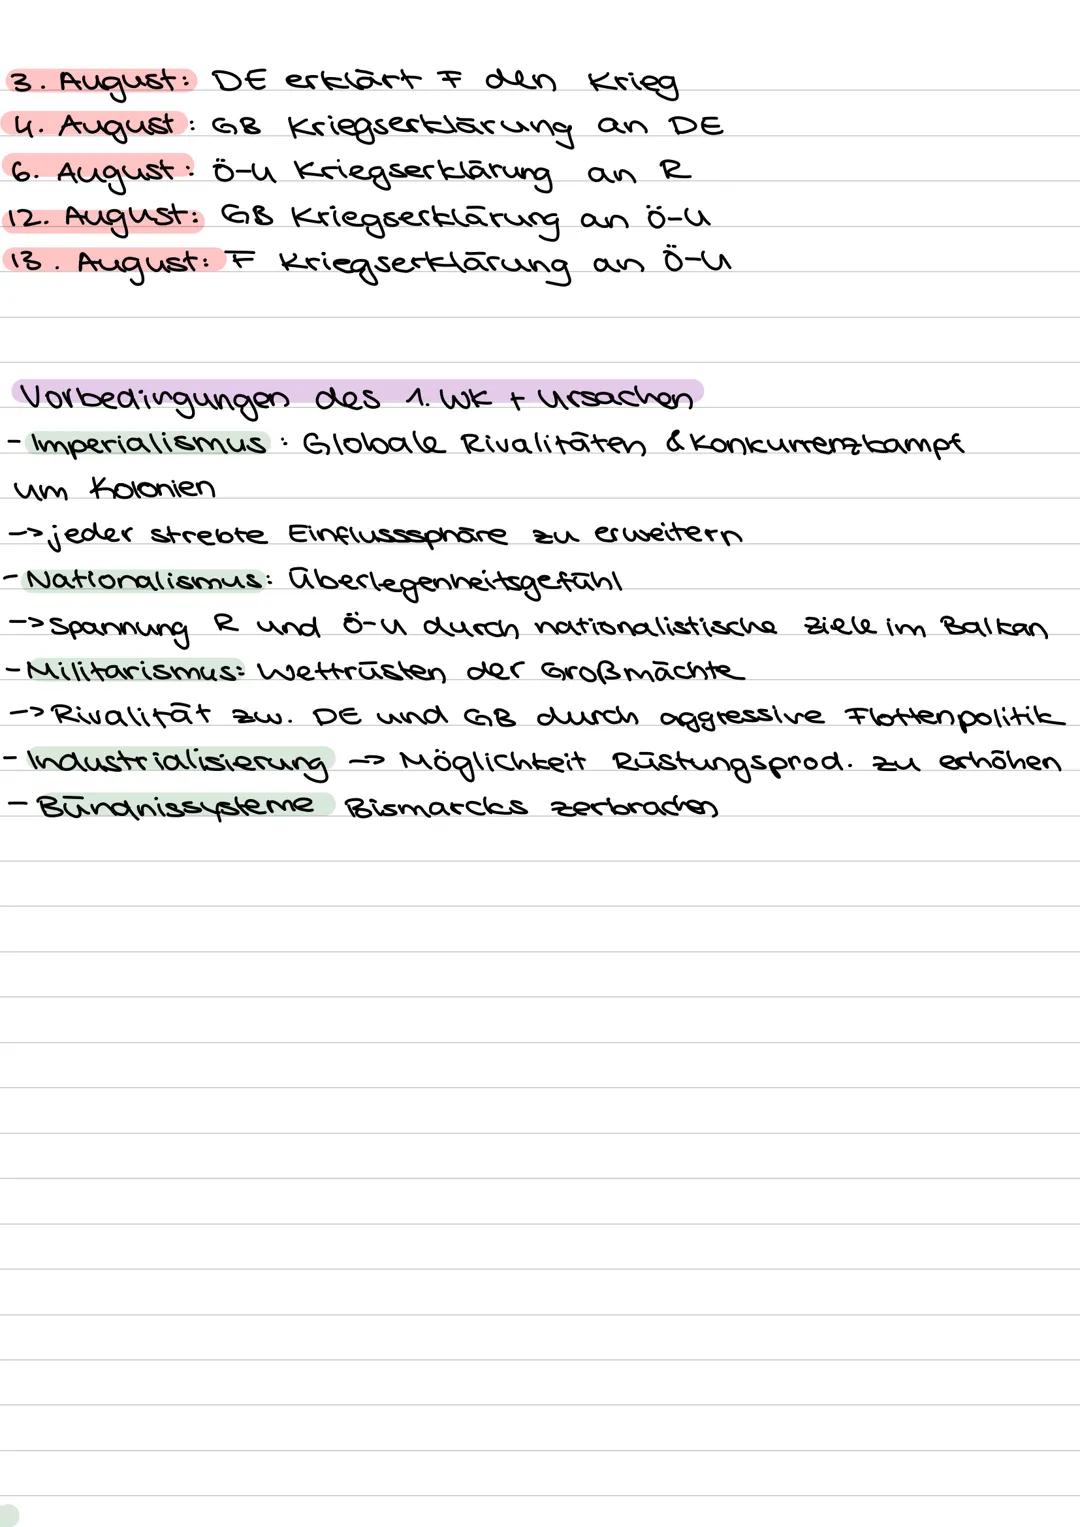 3. August: DE erklärt F den Krieg
4. August: GB Kriegserklärung an DE
6. August: Ö-U Kriegserklärung an R
12. August: GB Kriegserklärung an Ö-U
13. August: F Kriegserklärung an Ö-U
Vorbedingungen des 1. WK + Ursachen
- Imperialismus: Globale Rivalitäten & Konkurrenzkampf
um Kolonien
-> jeder strebte Einflusssphäre zu erweitern
- Nationalismus: Überlegenheitsgefühl
-> Spannung R und Ö-U durch nationalistische Ziele im Balkan
- Militarismus: Wettrüsten der Großmächte
-> Rivalität zw. DE und GB durch aggressive Flottenpolitik
- Industrialisierung -> Möglichkeit Rüstungsprod. zu erhöhen
- Bündnissysteme Bismarcks zerbrachen